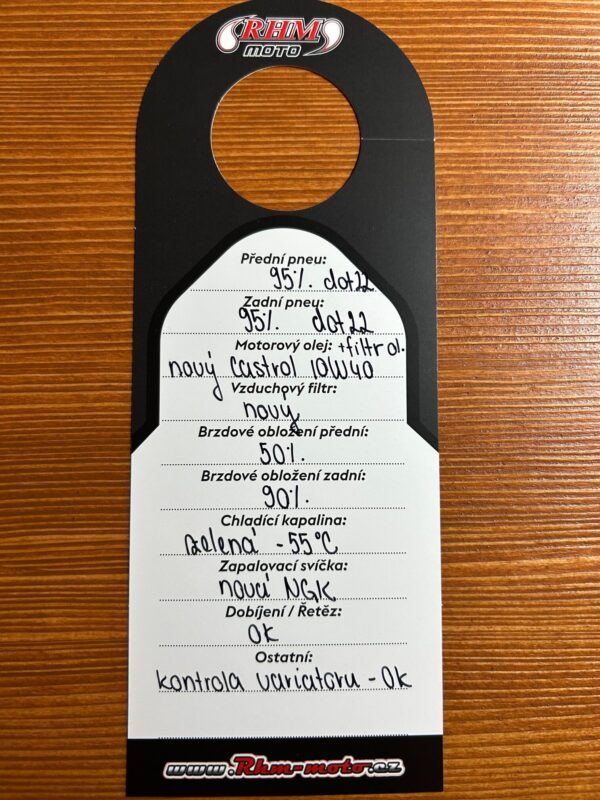 RHM
MOTO
Přední pneu:
95%. dot22
Zadní pneu:
95%. dot22
Motorový olej: + filtr ol.
nový Castrol 10W40
Vzduchový filtr:
nový
Brzdové obložení přední:
50%.
Brzdové obložení zadní:
90%.
Chladící kapalina:
zelená -55°C
Zapalovací svíčka:
nová NGK
Dobíjení / Řetěz:
OK
Ostatní:
kontrola variatoru - Ok
www.Rhm-moto.cz